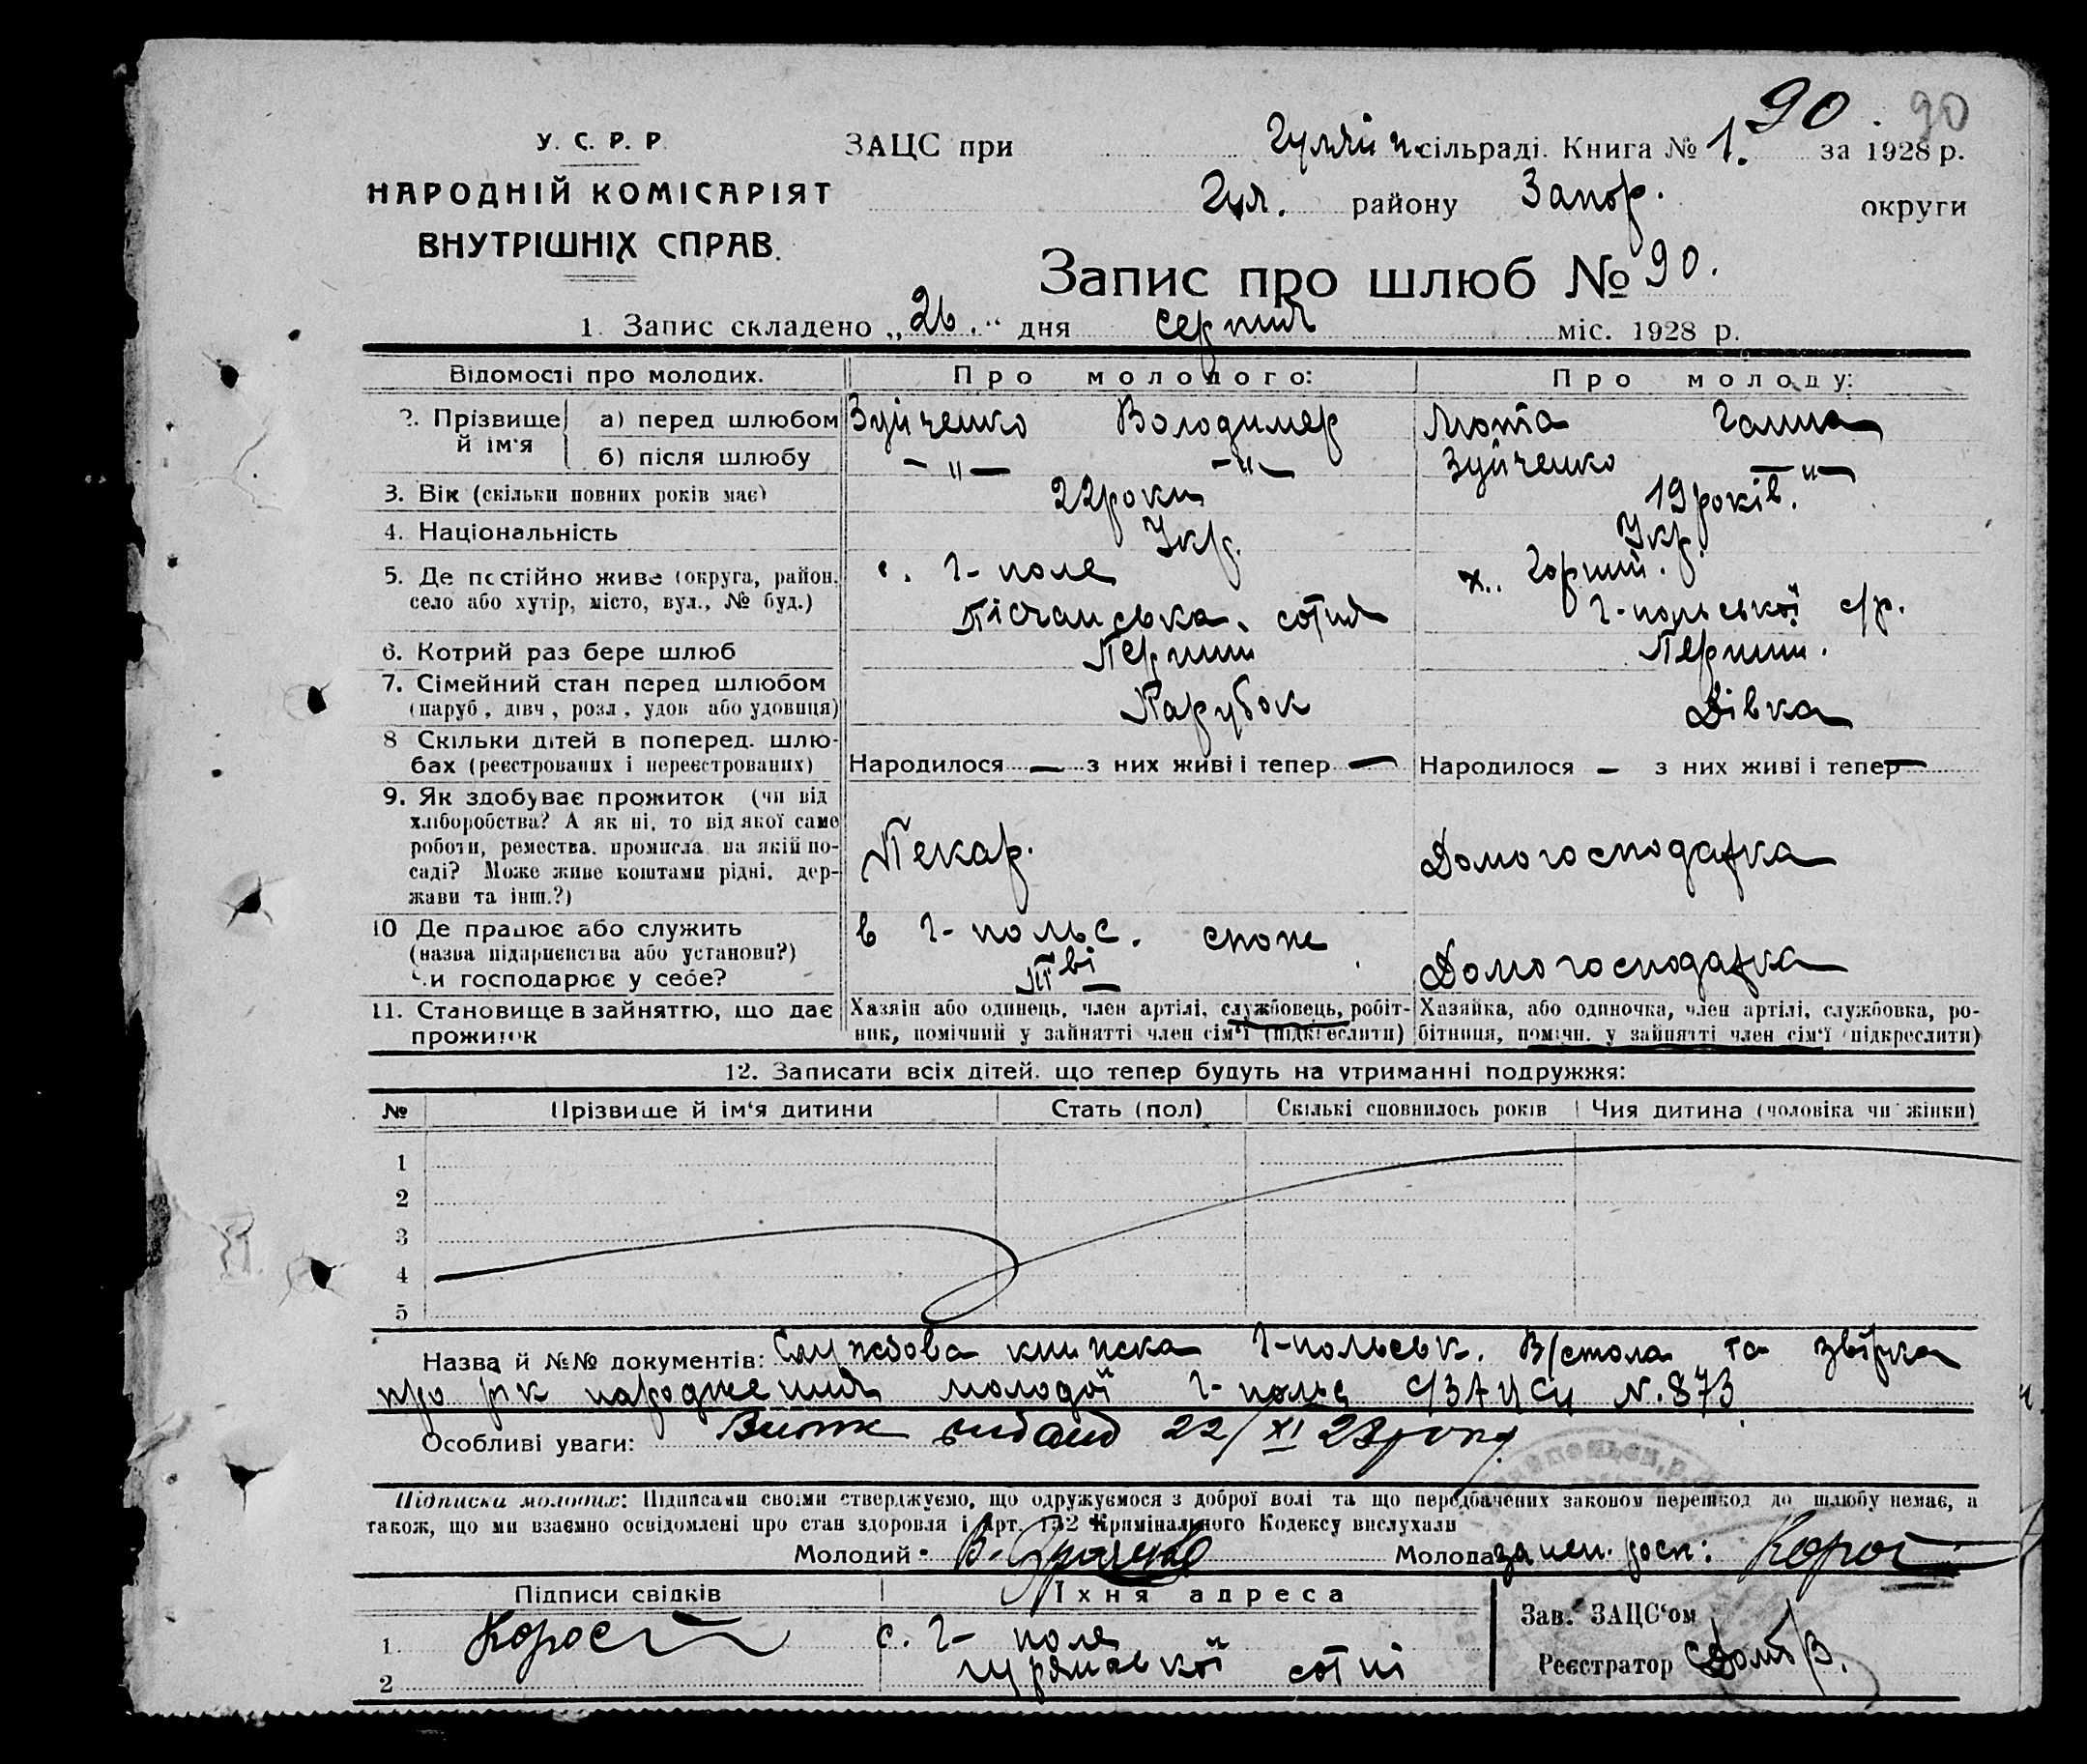 90. 90
У. С. Р. Р.
НАРОДНІЙ КОМІСАРІЯТ
ВНУТРІШНІХ СПРАВ.
ЗАЦС при Гуляй п. сільраді. Книга № 1. за 1928 р.
Гул. району Запор. округи
Запис про шлюб № 90.
1. Запис складено „26.“ дня серпня міс. 1928 р.
Відомості про молодих. Про молодого: Про молоду:
2. Прізвище й ім‘я а) перед шлюбом Зуйченко Володимер Люта Ганна
б) після шлюбу — " — — " — Зуйченко — " —
3. Вік (скільки повних років має) 22 роки 19 років.
4. Національність Укр. Укр.
5. Де постійно живе (округа, район, с. Г-поле х. Горпин.
село або хутір, місто, вул., № буд.) Пісчанська сотня Г-польської с/р.
6. Котрий раз бере шлюб Перший Перший.
7. Сімейний стан перед шлюбом
(паруб., дівч., розл., удов. або удовиця) Парубок Дівка
8 Скільки дітей в поперед. шлю-
бах (реєстрованих і нереєстрованих) Народилося — з них живі і тепер — Народилося — з них живі і тепер —
9. Як здобуває прожиток (чи від
хліборобства? А як ні, то від якої саме
роботи, ремества, промисла, на якій по- Пекар. Домогосподарка
саді? Може живе коштами рідні, дер-
жави та інш.?)
10 Де працює або служить в Г-польс. спож
(назва підприємства або установи?) Т-ві Домогосподарка
Чи господарює у себе?
11. Становище в зайняттю, що дає Хазяін або одинець, член артілі, службовець, робіт- Хазяйка, або одиночка, член артілі, службовка, ро-
прожиток ник, помічний у зайнятті член сім‘ї (підкреслити) бітниця, помічн. у зайнятті член сім‘ї (підкреслити)
12. Записати всіх дітей, що тепер будуть на утриманні подружжя:
№ Прізвище й ім‘я дитини Стать (пол) Скількі сповнилось років Чия дитина (чоловіка чи жінки)
1
2
3
4
5
Назва й №№ документів: Службова книжка Г-польськ. В/стола та звірка
про рік народження молодої Г-польс с/ЗАЦСу №. 873
Особливі уваги: Витяг видано 22/XI 28 року
Підписи молодих: Підписами своїми стверджуємо, що одружуємося з доброї волі та що передбачених законом перешкод до шлюбу немає, а
також, що ми взаємно освідомлені про стан здоровля і Арт. 152 Кримінального Кодексу вислухали
Молодий: В. Зуйченко Молода: за неп. росп:
Підписи свідків Їхня адреса
1. с. Г-поле
2 сотні
Зав. ЗАЦС‘ом
Реєстратор